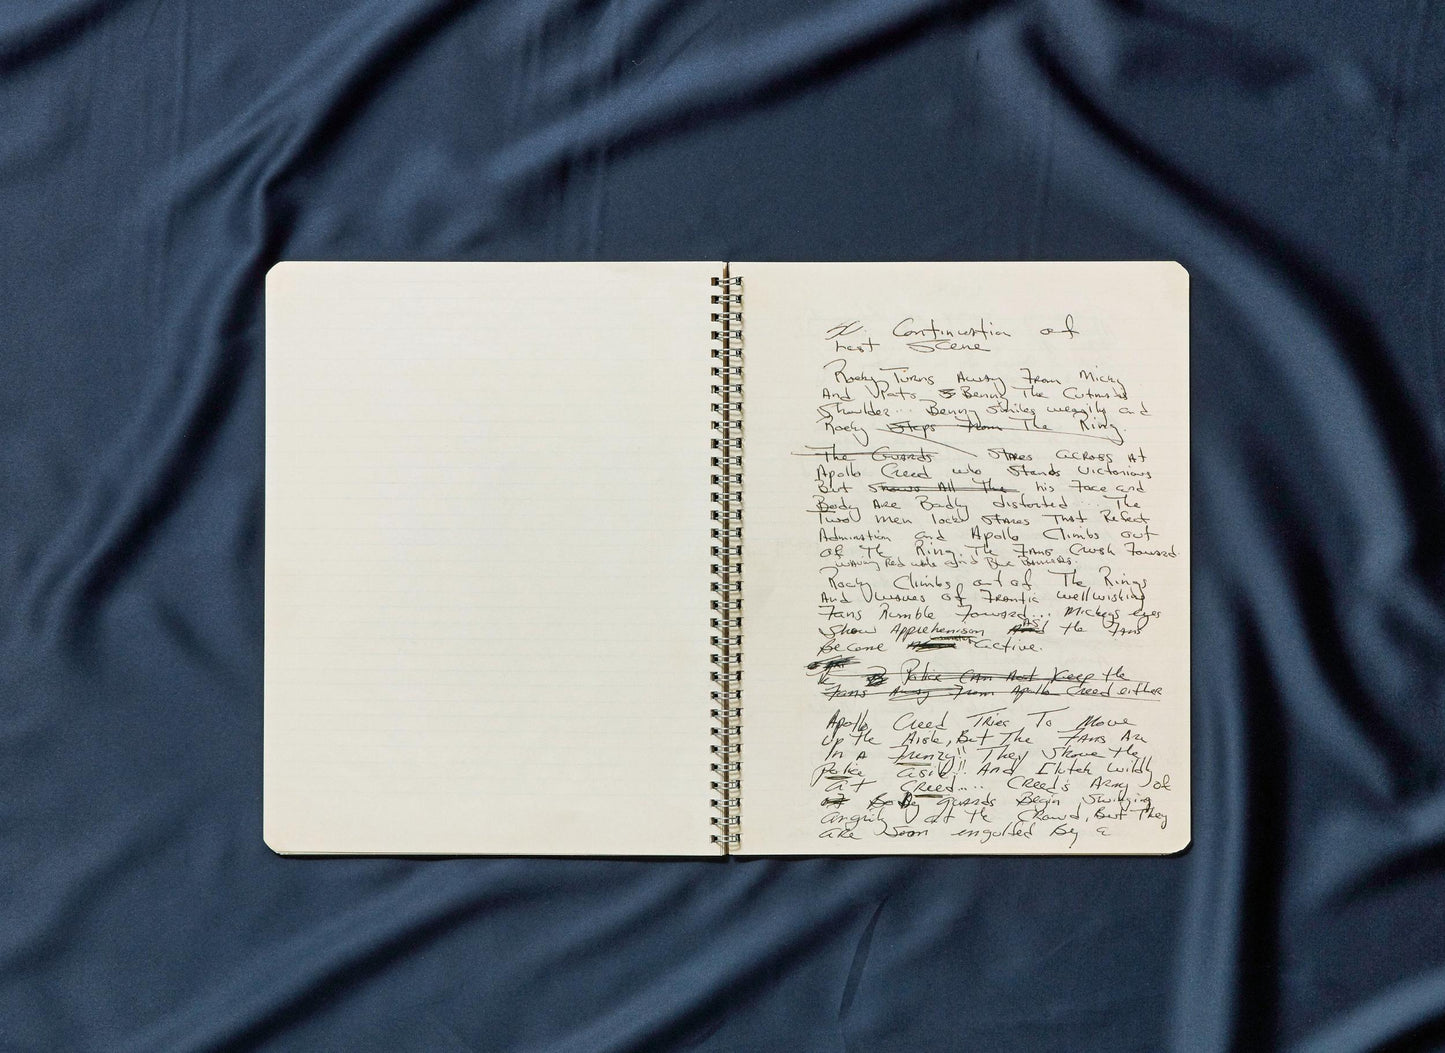 Continuation of
Last Scene
Rocky Turns Away From Micky
And Pats Benny The Cutmans
Shoulder... Benny Smiles wearily and
Rocky Steps From The Ring.
The Guards Stares across at
Apollo Creed who Stands victorious
But Shows All The his Face and
Body Are Badly distorted... The
Two men lock Stares That Reflect
Admiration and Apollo Climbs out
of The Ring. The Fans Crush Forward
waving Red white and Blue Banners.
Rocky Climbs out of The Rings
And waves of Frantic wellwishing
Fans Rumble Forward... Mickeys eyes
Show Apprehenison AS the Fans
Become active.
Police CAn Not Keep the
Fans Away From Apollo Creed either
Apollo Creed Tries To Move
Up the Aisle, But The Fans Are
In A Frenzy!! They Shove the
Police aside!! And Clutch wildly
at Creed.... Creed's Army of
Body guards Begin Swinging
angrily at the Crowd, But They
are Soon engulfed By a